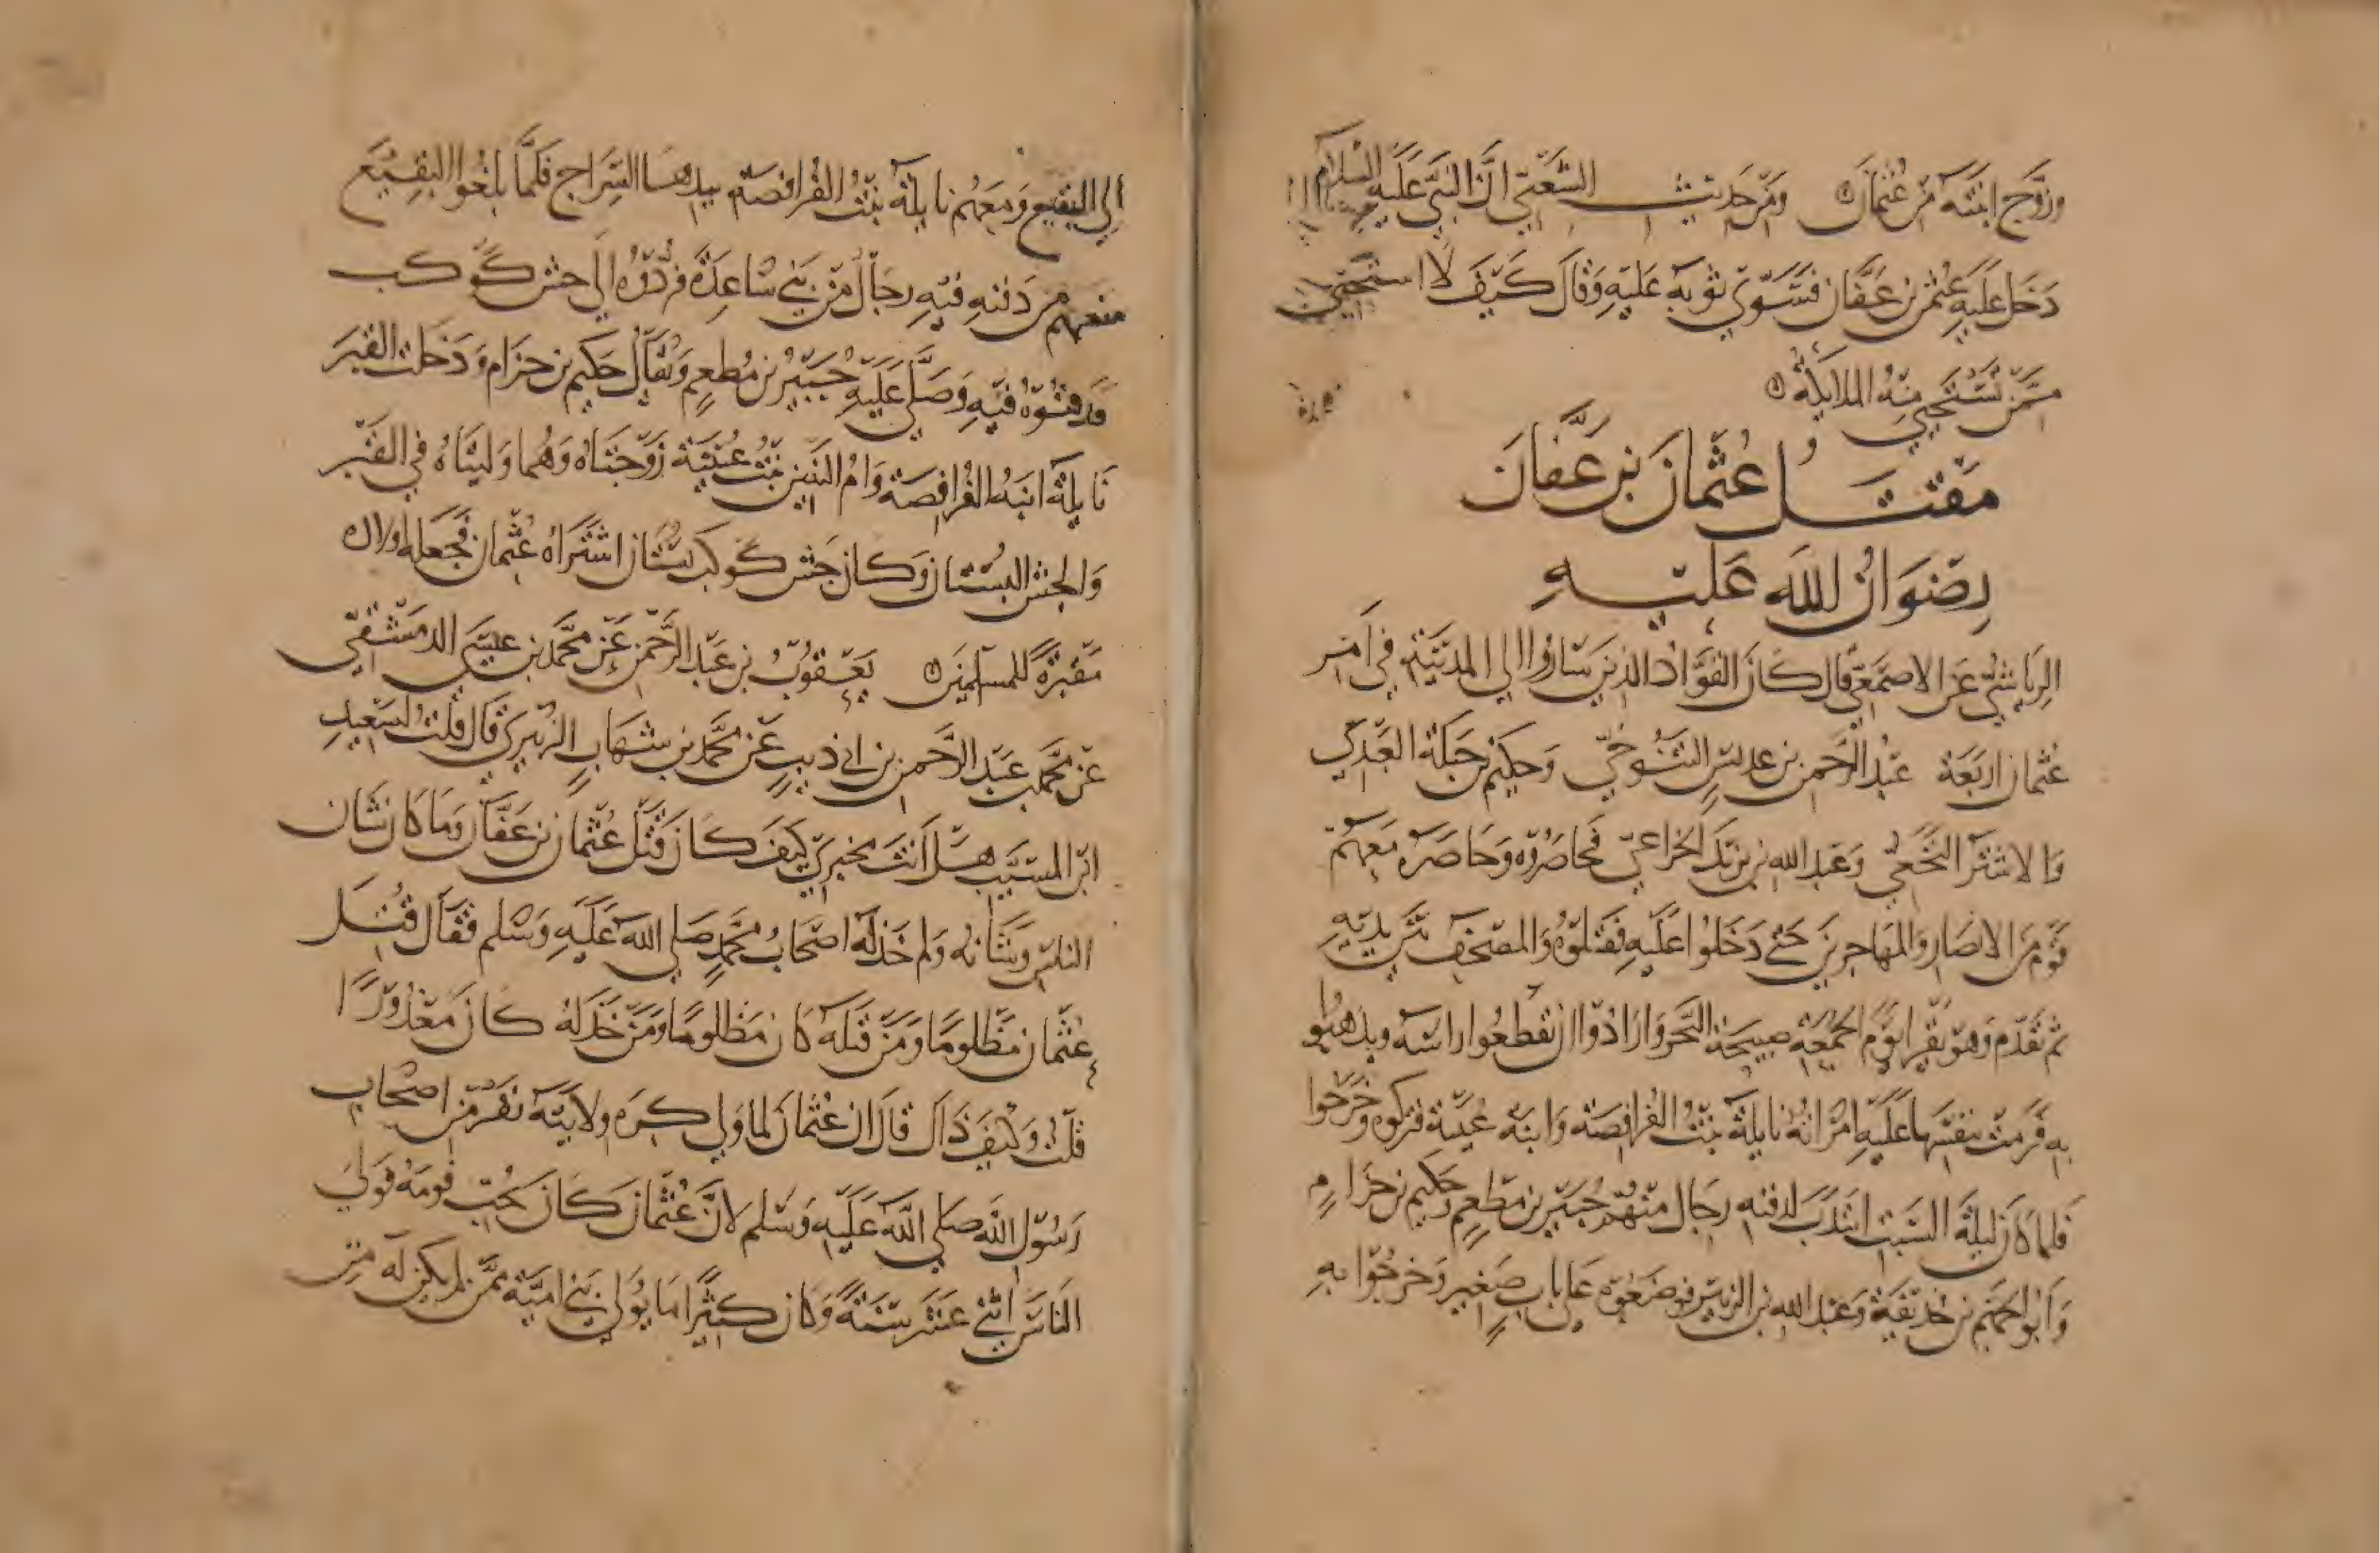 وزوج ابنته من عثمان ومن حديث الشعبي ان النبي عليه السلام
دخل عليه عثمن بن عفان فسوى ثوبه عليه وقال كيف لا استحيي
ممن تستحيي منه الملائكة
مقتل عثمان بن عفان
رضوان الله عليه
الرياشي عن الاصمعي قال كان القواد الذين ساروا الى المدينة في امر
عثمان اربعة عبد الرحمن بن عديس التنوخي وحكيم بن جبلة العبدي
والاشتر النخعي وعبد الله بن بديل الخزاعي فحاصروه وحاصره معهم
قوم من الانصار والمهاجرين حتى دخلوا عليه فقتلوه والمصحف بين يديه
ثم تقدم وهو يقرا يوم الجمعة صبيحة النحر وارادوا ان يقطعوا راسه ويذهبوا
به فرمت بنفسها عليه امراته نايلة بنت الفرافصة وابنة عيينة فتركوه وخرجوا
فلما كان ليلة السبت انتدب لدفنه رجال منهم جبير بن مطعم وحكيم بن حزام
وابو الجهم بن حذيفة وعبد الله بن الزبير فوضعوه على باب صغير وخرجوا به
الى البقيع ومعهم نايلة بنت الفرافصة بيدها السراج فلما بلغوا البقيع
منعهم من دفنه فيه رجال من بني ساعدة فردوه الى حش كوكب
فدفنوه فيه وصلى عليه جبير بن مطعم ويقال حكيم بن حزام ودخلت القبر
نايلة ابنة الفرافصة وام البنين بنت عيينة زوجتاه وهما وليتاه في القبر
والحش البستان وكان حش كوكب بستان اشتراه عثمان فجعله اولاده
مقبرة للمسلمين يعقوب بن عبد الرحمن عن محمد بن عيسى الدمشقي
عن محمد بن عبد الرحمن بن ابي ذيب عن محمد بن شهاب الزهري قال قلت لسعيد
ابن المسيب هل انت مخبري كيف كان قتل عثمان بن عفان وما كان شان
الناس وشانه ولم خذله اصحاب محمد صلى الله عليه وسلم فقال قتل
عثمان مظلوما ومن قتله كان مظلوما ومن خذله كان معذورا
قلت وكيف ذاك قال ان عثمان لما ولي كره ولايته نفر من اصحاب
رسول الله صلى الله عليه وسلم لان عثمان كان يحب قومه فولي
الناس اثني عشر سنة وكان كثيرا ما يولي بني امية ممن لم يكن له من